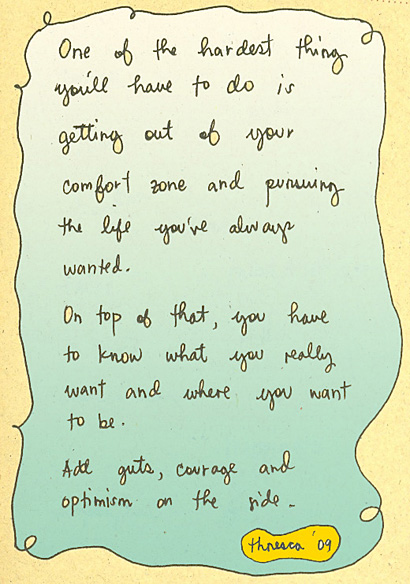 One of the hardest thing
you'll have to do is
getting out of your
comfort zone and pursuing
the life you've always
wanted.
On top of that, you have
to know what you really
want and where you want
to be.
Add guts, courage and
optimism on the side.
thresca '09